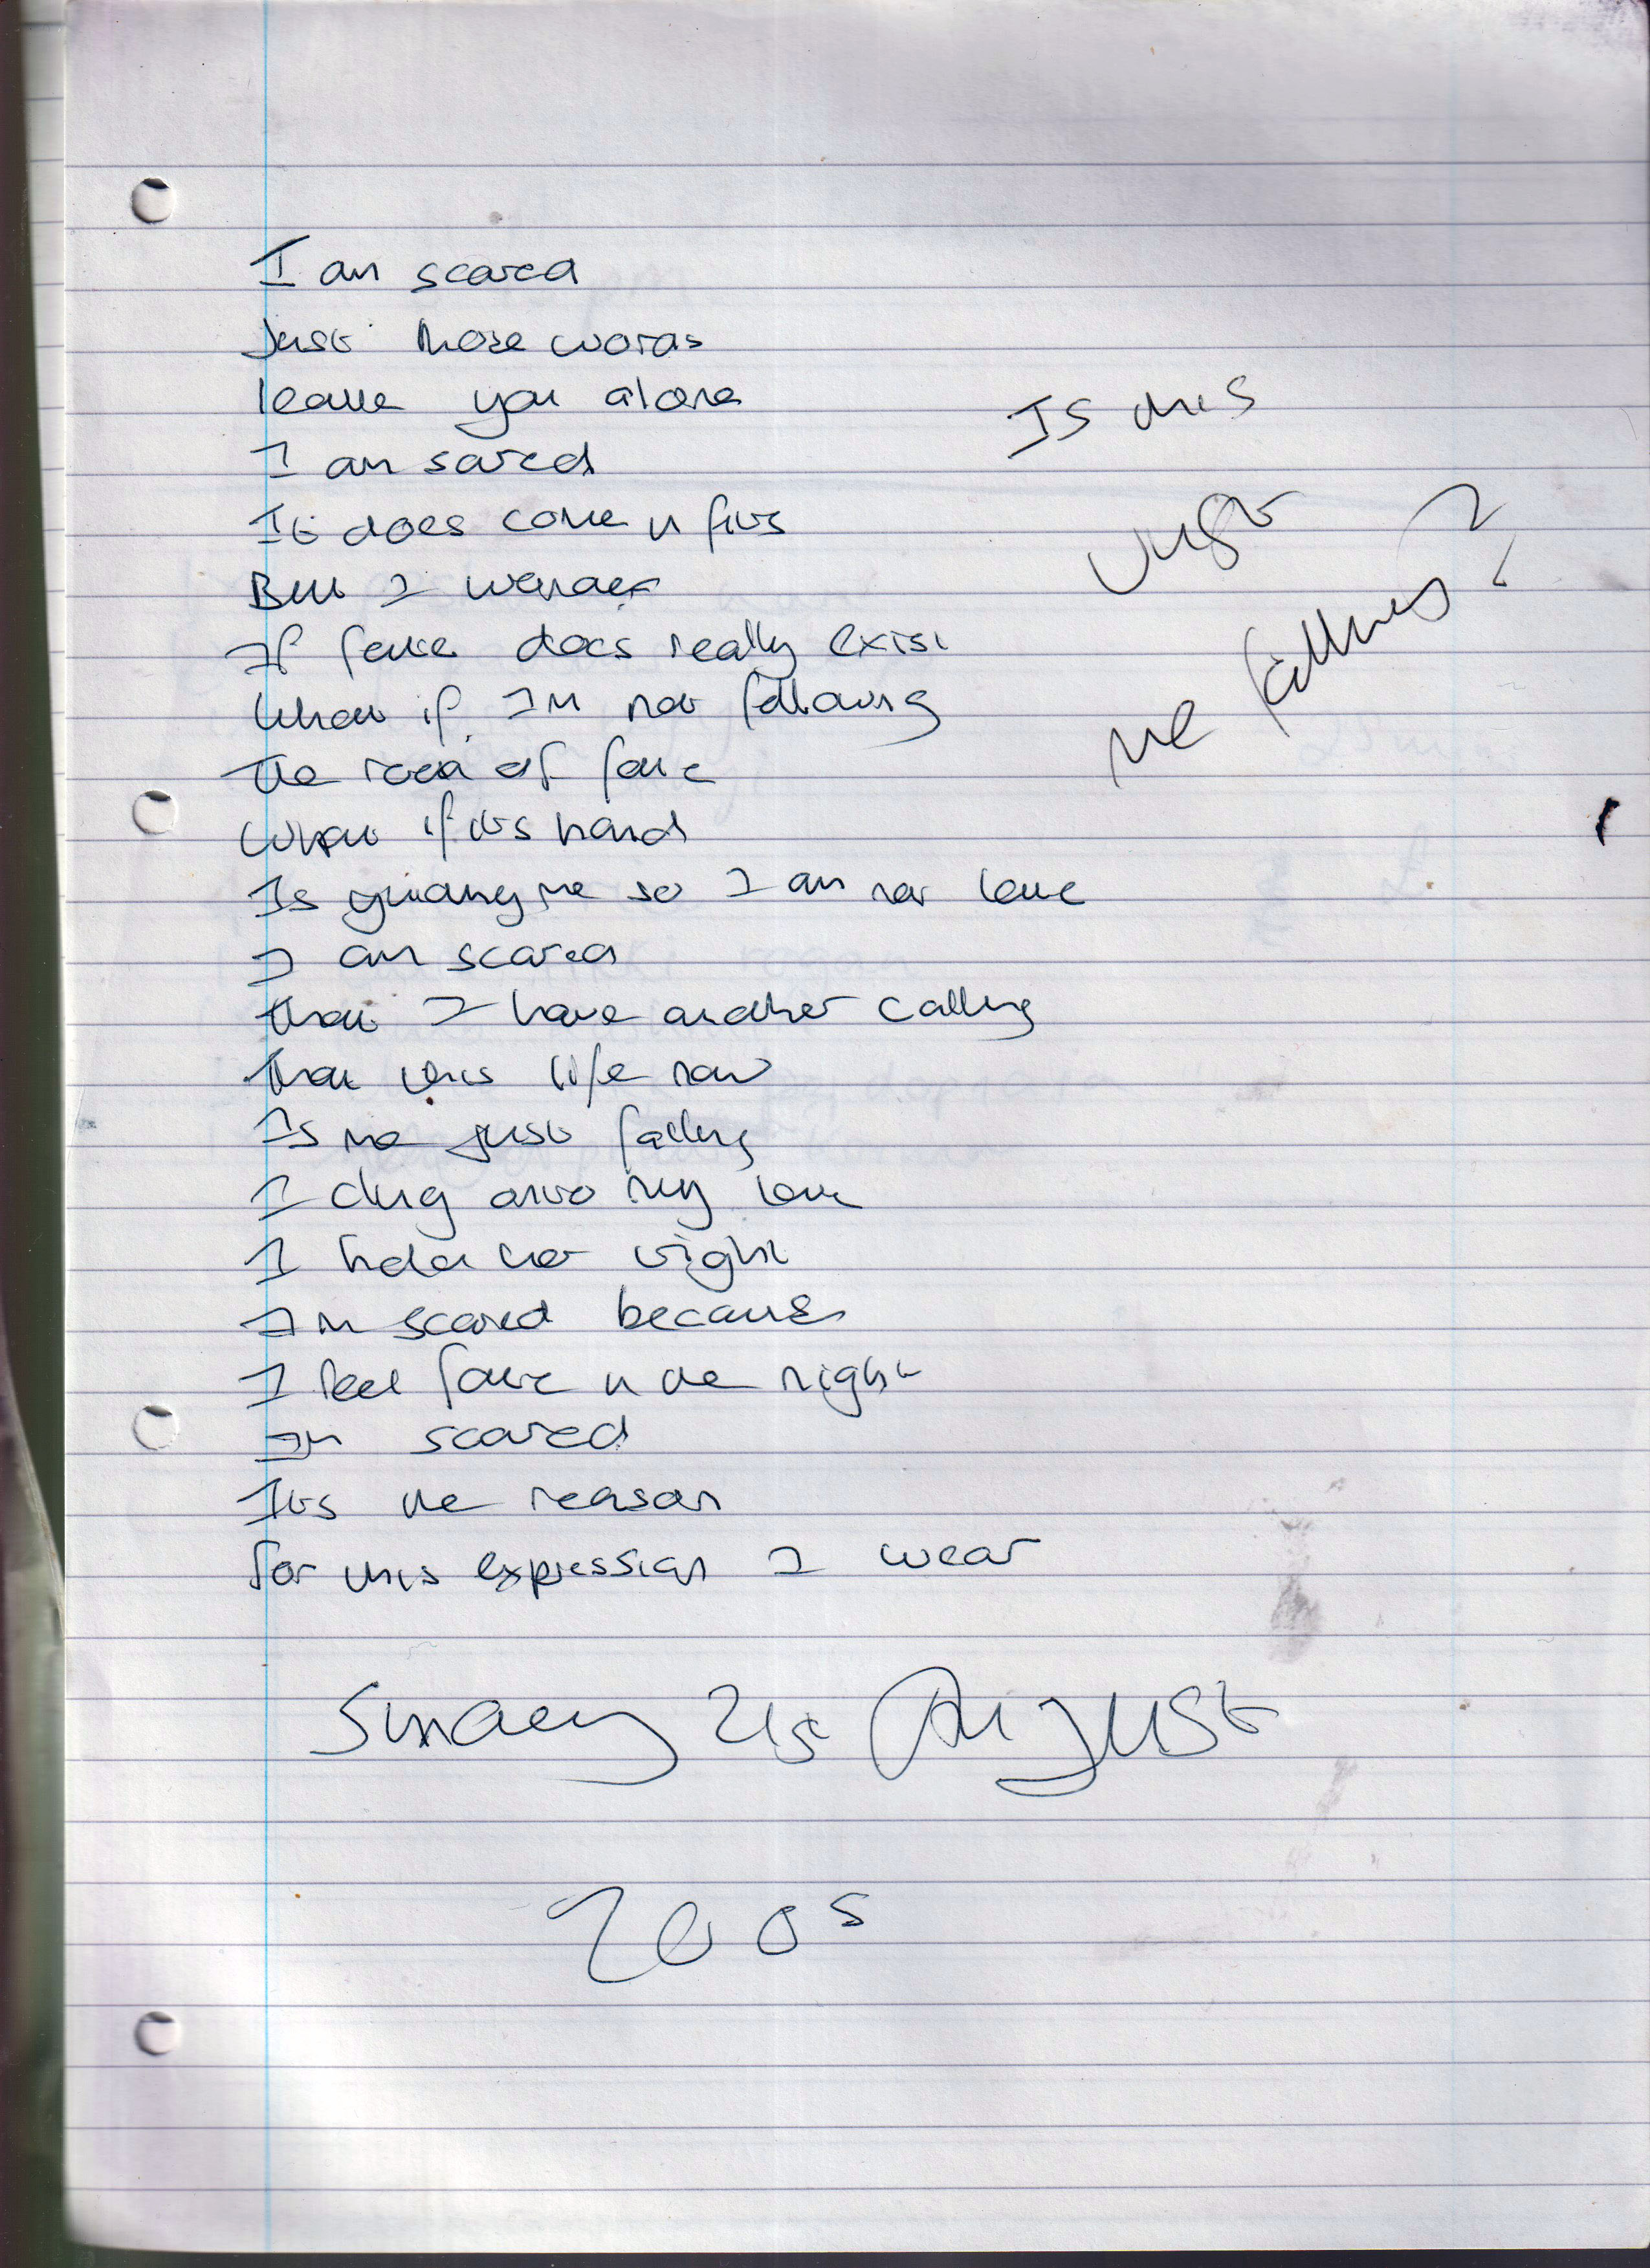 I am scared
Just those words
leave you alone
I am scared
It does come in fits
But I wonder
If fate does really exist
What if Im not following
The idea of fate
What if its hand
Is guiding me so I am not late
I am scared
that I have another calling
That this life now
Is me just falling
I cling onto my love
I hold her tight
Im scared because
I feel fate in the night
Im scared
Its the reason
for this expression I wear
Is this
Just
me falling?
Sunday 21st August
2005